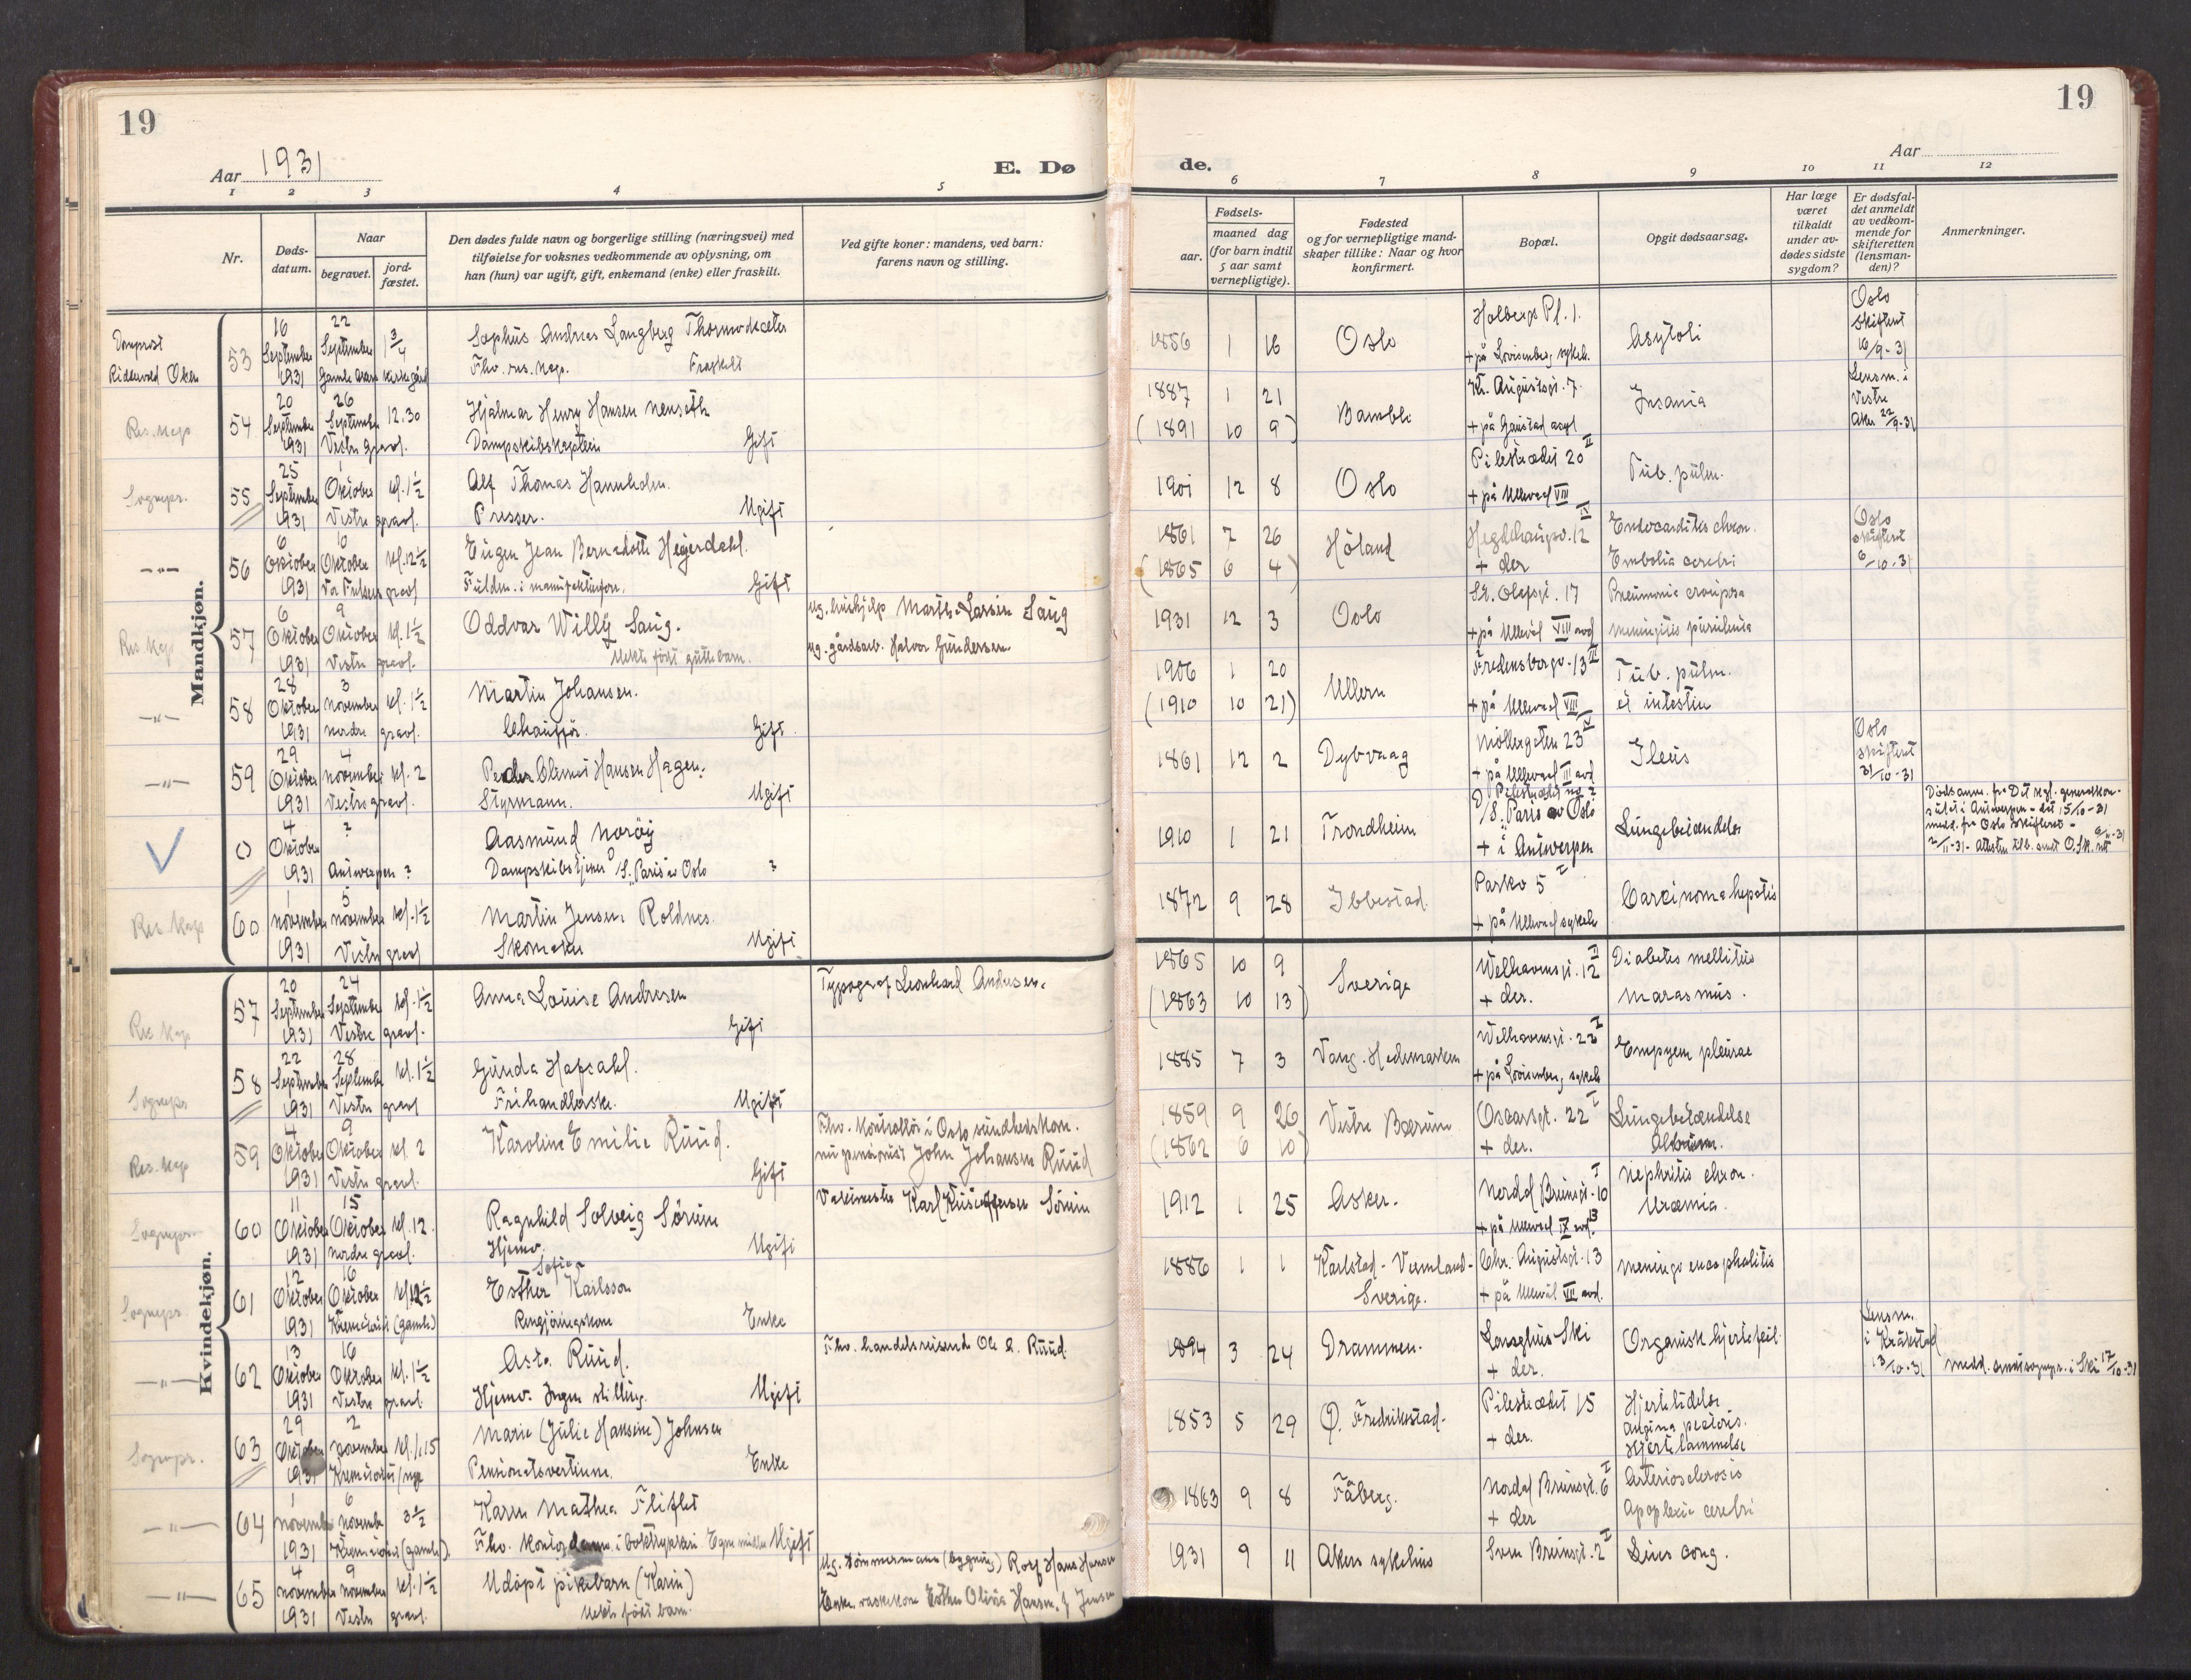 19
19
Aar 1931
E. Dø
de.
Aar
1 2 3 4 5
6 7 8 9 10 11 12
Nr.
Døds-
datum.
Naar
begravet.
jord-
fæstet.
Den dødes fulde navn og borgerlige stilling (næringsvei) med
tilføielse for voksnes vedkommende av oplysning, om
han (hun) var ugift, gift, enkemand (enke) eller fraskilt.
Ved gifte koner: mandens, ved barn:
farens navn og stilling.
Fødsels-
aar.
maaned dag
(for barn indtil
5 aar samt
vernepligtige).
Fødested
og for vernepligtige mand-
skaper tillike: Naar og hvor
konfirmert.
Bopæl.
Opgit dødsaarsag.
Har læge
været
tilkaldt
under av-
dødes sidste
sygdom?
Er dødsfal-
det anmeldt
av vedkom-
mende for
skifteretten
(lensman-
den)?
Anmerkninger.
Mandkjøn.
Domprost
53
16 September 1931
22 September
Sophus Andreas Langberg
Fhv. res. kap. Fraskilt
1856 1 16
Oslo
Holbergs Pl. 1.
+ på Lovisenberg sykeh.
Asystoli
Oslo
skifteret
16/9-31
Res. kap
54
20 September 1931
26 September 12.30
Vestre gravl.
Hjalmar Henry Hansen
Dampskibskaptein Gift
1887 1 21
(1891 10 9)
Bamble
Kr. Augustsgt. 7.
+ på Gaustad asyl
Insania
Lensm. i
Vestre
Aker 22/9-31
Sognepr.
55
25 September 1931
1 Oktober kl. 1½
Vestre gravl.
Alf Thomas
Presser. Ugift
1901 12 8
Oslo
Pilestrædet 20 II
+ på Ullevaal VIII
Tub. pulm.
— " —
56
6 Oktober 1931
10 Oktober kl. 12½
Vor Frelsers gravl
Eugen Jean Bernadotte Heyerdahl.
Fuldm. i Gift
1861 7 26
(1865 6 4)
Høland
Hegdehaugsv. 12 IV
+ der
Endocarditis chron.
Embolia cerebri
Oslo
skifteret
6/10-31
Res. kap
57
6 Oktober 1931
9 Oktober kl. 1½
Vestre gravl.
Oddvar Willy Saug.
Uekte født guttebarn.
ug. hushjelp Marthe Larsen Saug
ug. gårdsarb. Halvor Gundersen
1931 12 3
Oslo
St. Olafsgt. 17
+ på Ullevål VIII avd
Pneumonia crouposa
Meningitis purulenta
— " —
58
28 Oktober 1931
3 November kl. 1½
Nordre gravl.
Martin Johansen.
Chauffør. Gift
1906 1 20
(1910 10 21)
Ullern
Fredensborgv. 13 III
+ på Ullevaal VIII
Tub. pulm.
et intestin
— " —
59
29 Oktober 1931
4 November kl. 2
Vestre gravl.
Peder Hansen Hagen.
Styrmann. Ugift
1861 12 2
Dybvaag
Møllergaten 23 IV
+ på Ullevaal III avd
Ileus
Oslo
skifteret
31/10-31
0
4 Oktober 1931
?
Antwerpen ?
Aasmund Norøy
D/S. "Paris" av Oslo ?
1910 1 21
Trondheim
Pilestrædet no 2
D/S. "Paris" av Oslo
+ i Antwerpen
Lungebetændelse
Dødsanm. fra Det kgl. generalkon-
sulat i Antwerpen - dat 15/10-31
medd. fra Oslo skifteret -
Res. kap
60
1 November 1931
5 November kl. 1½
Vestre gravl
Martin Jensen Roldnes.
Skomaker Ugift
1872 9 28
Ibbestad.
Parkv 5 I
+ på Ullevaal sykeh
Carcinoma hepatis
Kvindekjøn.
Res. kap
57
20 September 1931
24 September kl. 1½
Vestre gravl.
Anna Louise Andresen
Gift
Typograf Leonhard Andresen.
1865 10 9
(1863 10 13)
Sverige
Welhavensgt. 12 II
+ der.
Diabetes mellitus
Marasmus.
Sognepr
58
22 September 1931
28 September kl. 1½
Vestre gravl
Gunda Hafsahl.
Frihandlerske. Ugift
1885 7 3
Vang. Hedemarken
Welhavensgt. 22 I
+ på Lovisenberg sykeh
Empyem pleurae
Res. kap
59
4 Oktober 1931
9 Oktober kl. 2
Vestre gravl.
Karoline Emilie Ruud.
Gift
Fhv. kontrollør i Oslo sundhetskom.
nu pensjonist John Johansen Ruud
1859 9 26
(1862 6 10)
Vestre Bærum
Oscarsgt. 22 I
+ der.
Lungebetændelse
Sognepr.
60
11 Oktober 1931
15 Oktober kl. 12.
Nordre gravl.
Ragnhild Solveig Sørum
Hjemv. Ugift
Vaktmester Karl Kristoffersen Sørum
1912 1 25
Asker.
Nordal Brunsgt. 10 I
+ på Ullevaal IX avd.
Nephritis chron.
Uræmia.
Sognepr.
61
12 Oktober 1931
16 Oktober kl. 12½
Krematoriet (gamle)
Esther Sofie Karlsson
Rengjøringskone Enke
1886 1 1
Karlstad - Vermland -
Sverige.
Chr. Augustsgt. 13
+ på Ullevål VII avd.
Meningo encephalitis
— " —
62
13 Oktober 1931
16 Oktober kl. 1½
Vestre gravl
Asta Ruud.
Hjemv. Ingen stilling. Ugift
Fhv. handelsreisende Ole A. Ruud.
1894 3 24
Drammen.
Langhus Ski
+ der.
Organisk hjertefeil.
Lensm.
i Kråkstad
13/10-31
medd. sendt sognepr. i Ski 17/10-31
Sognepr.
63
29 Oktober 1931
2 November kl. 1.15
Krematoriet / nye
Marie (Julie Hansine) Johnsen
Pensionatsvertinne. Enke
1853 5 29
Ø. Fredrikstad.
Pilestrædet 15
+ der.
Hjertelidelse
Angina pectoris.
Hjertelammelse
— " —
64
1 November 1931
6 November 3½
Krematoriet (gamle).
Karen Mathea Fliflet
Fhv. kontordame i boktrykkeri Ugift
1863 9 8
Fåberg.
Nordal Brunsgt. 6 I
+ der
Arteriosclerosis
Apoplexia cerebri
— " —
65
4 November 1931
9 November kl. 1½
Vestre gravl.
Udøpt pikebarn (Karin)
Uekte født barn.
Ug. tømmermann (bygning) Rolf Hans Hansen
Enke, vaskekone Esther Olivia Hansen, f. Jensen
1931 9 11
Akers sykehus
Sven Brunsgt. 2 I
Lues cong.